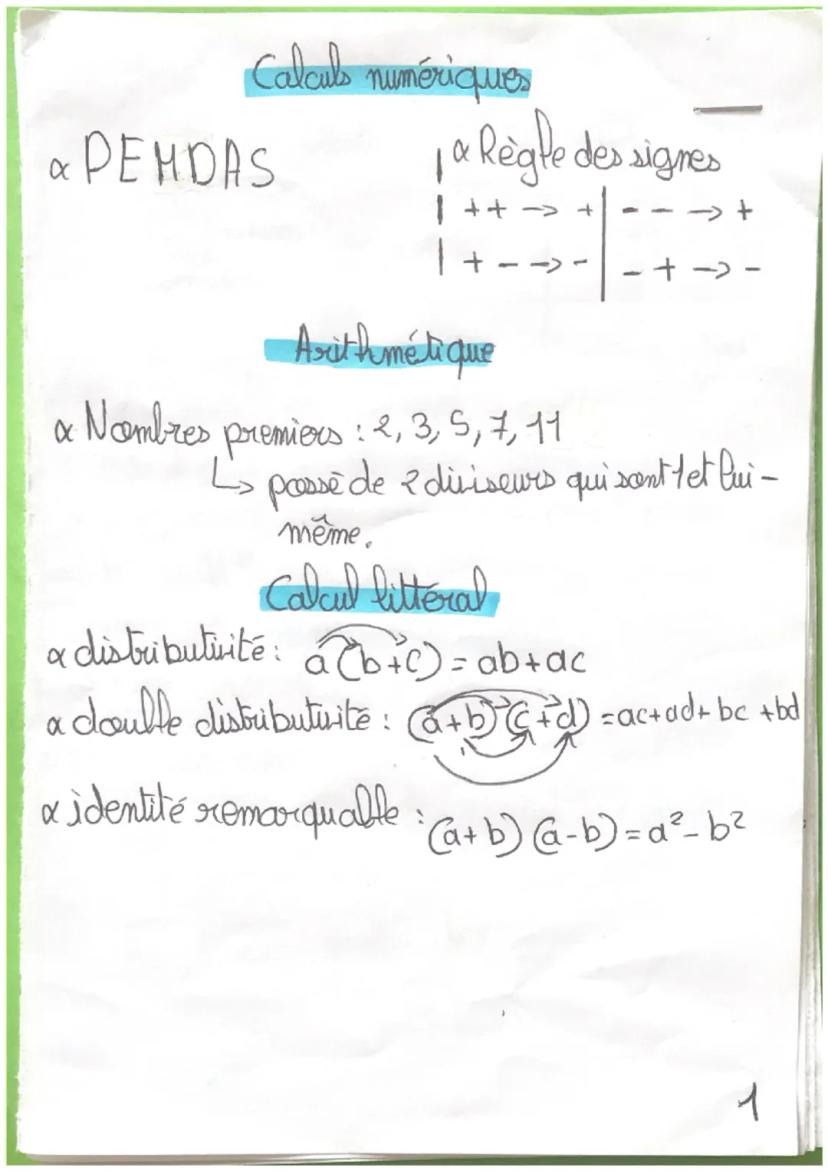 Calculs numériques
∝ PEMDAS
∝ Règle des signes
++ -> + | -- -> +
+- -> - | -+ -> -
Arithmétique
∝ Nombres premiers : 2, 3, 5, 7, 11
↳ possède 2 diviseurs qui sont 1 et lui-
même.
Calcul littéral
∝ distributivité : a(b+c) = ab+ac
∝ double distributivité : (a+b)(c+d) = ac+ad+bc+bd
∝ identité remarquable : (a+b)(a-b) = a²-b²
1